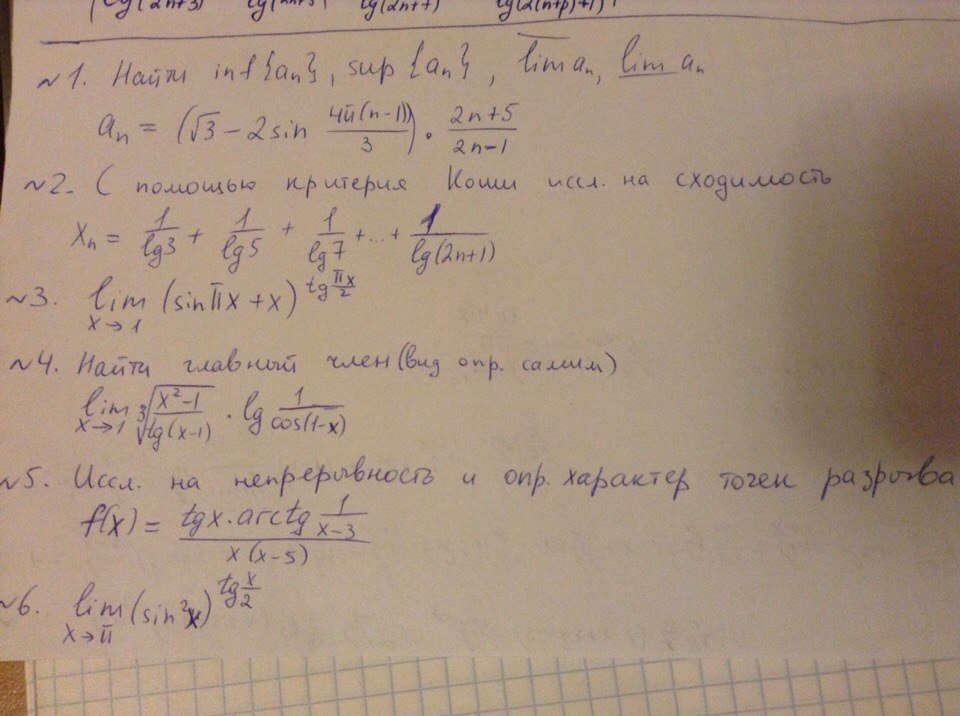 lg(2n+3) lg(2n+5) lg(2n+7) lg(2(n+p)+1)
~1. Найти inf{aₙ}, sup{aₙ}, l̅i̅m̅ aₙ, l̲i̲m̲ aₙ
aₙ = (√3 − 2sin 4π(n-1)/3) · 2n+5/2n-1
~2. С помощью критерия Коши иссл. на сходимость
xₙ = 1/lg3 + 1/lg5 + 1/lg7 + ... + 1/lg(2n+1)
~3. lim x→1 (sin πx + x)^(tg πx/2)
~4. Найти главный член (вид опр. самим)
lim x→1 ∛(x²-1/tg(x-1)) · lg 1/cos(1-x)
~5. Иссл. на непрерывность и опр. характер точек разрыва
f(x) = tgx·arctg 1/(x-3) / x(x-5)
~6. lim x→π (sin²x)^(tg x/2)